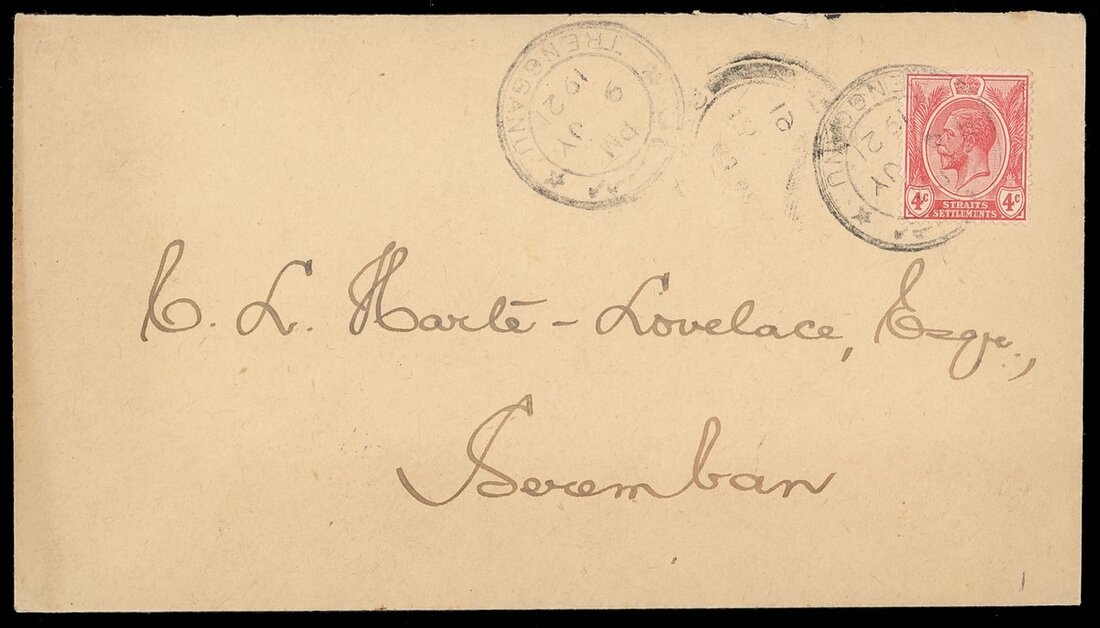 TRENGGANU
9 PM
JY
192
TRENGGANU
JY
192
4c 4c
STRAITS
SETTLEMENTS
C. L. Harte-Lovelace, Esqr.,
Seremban